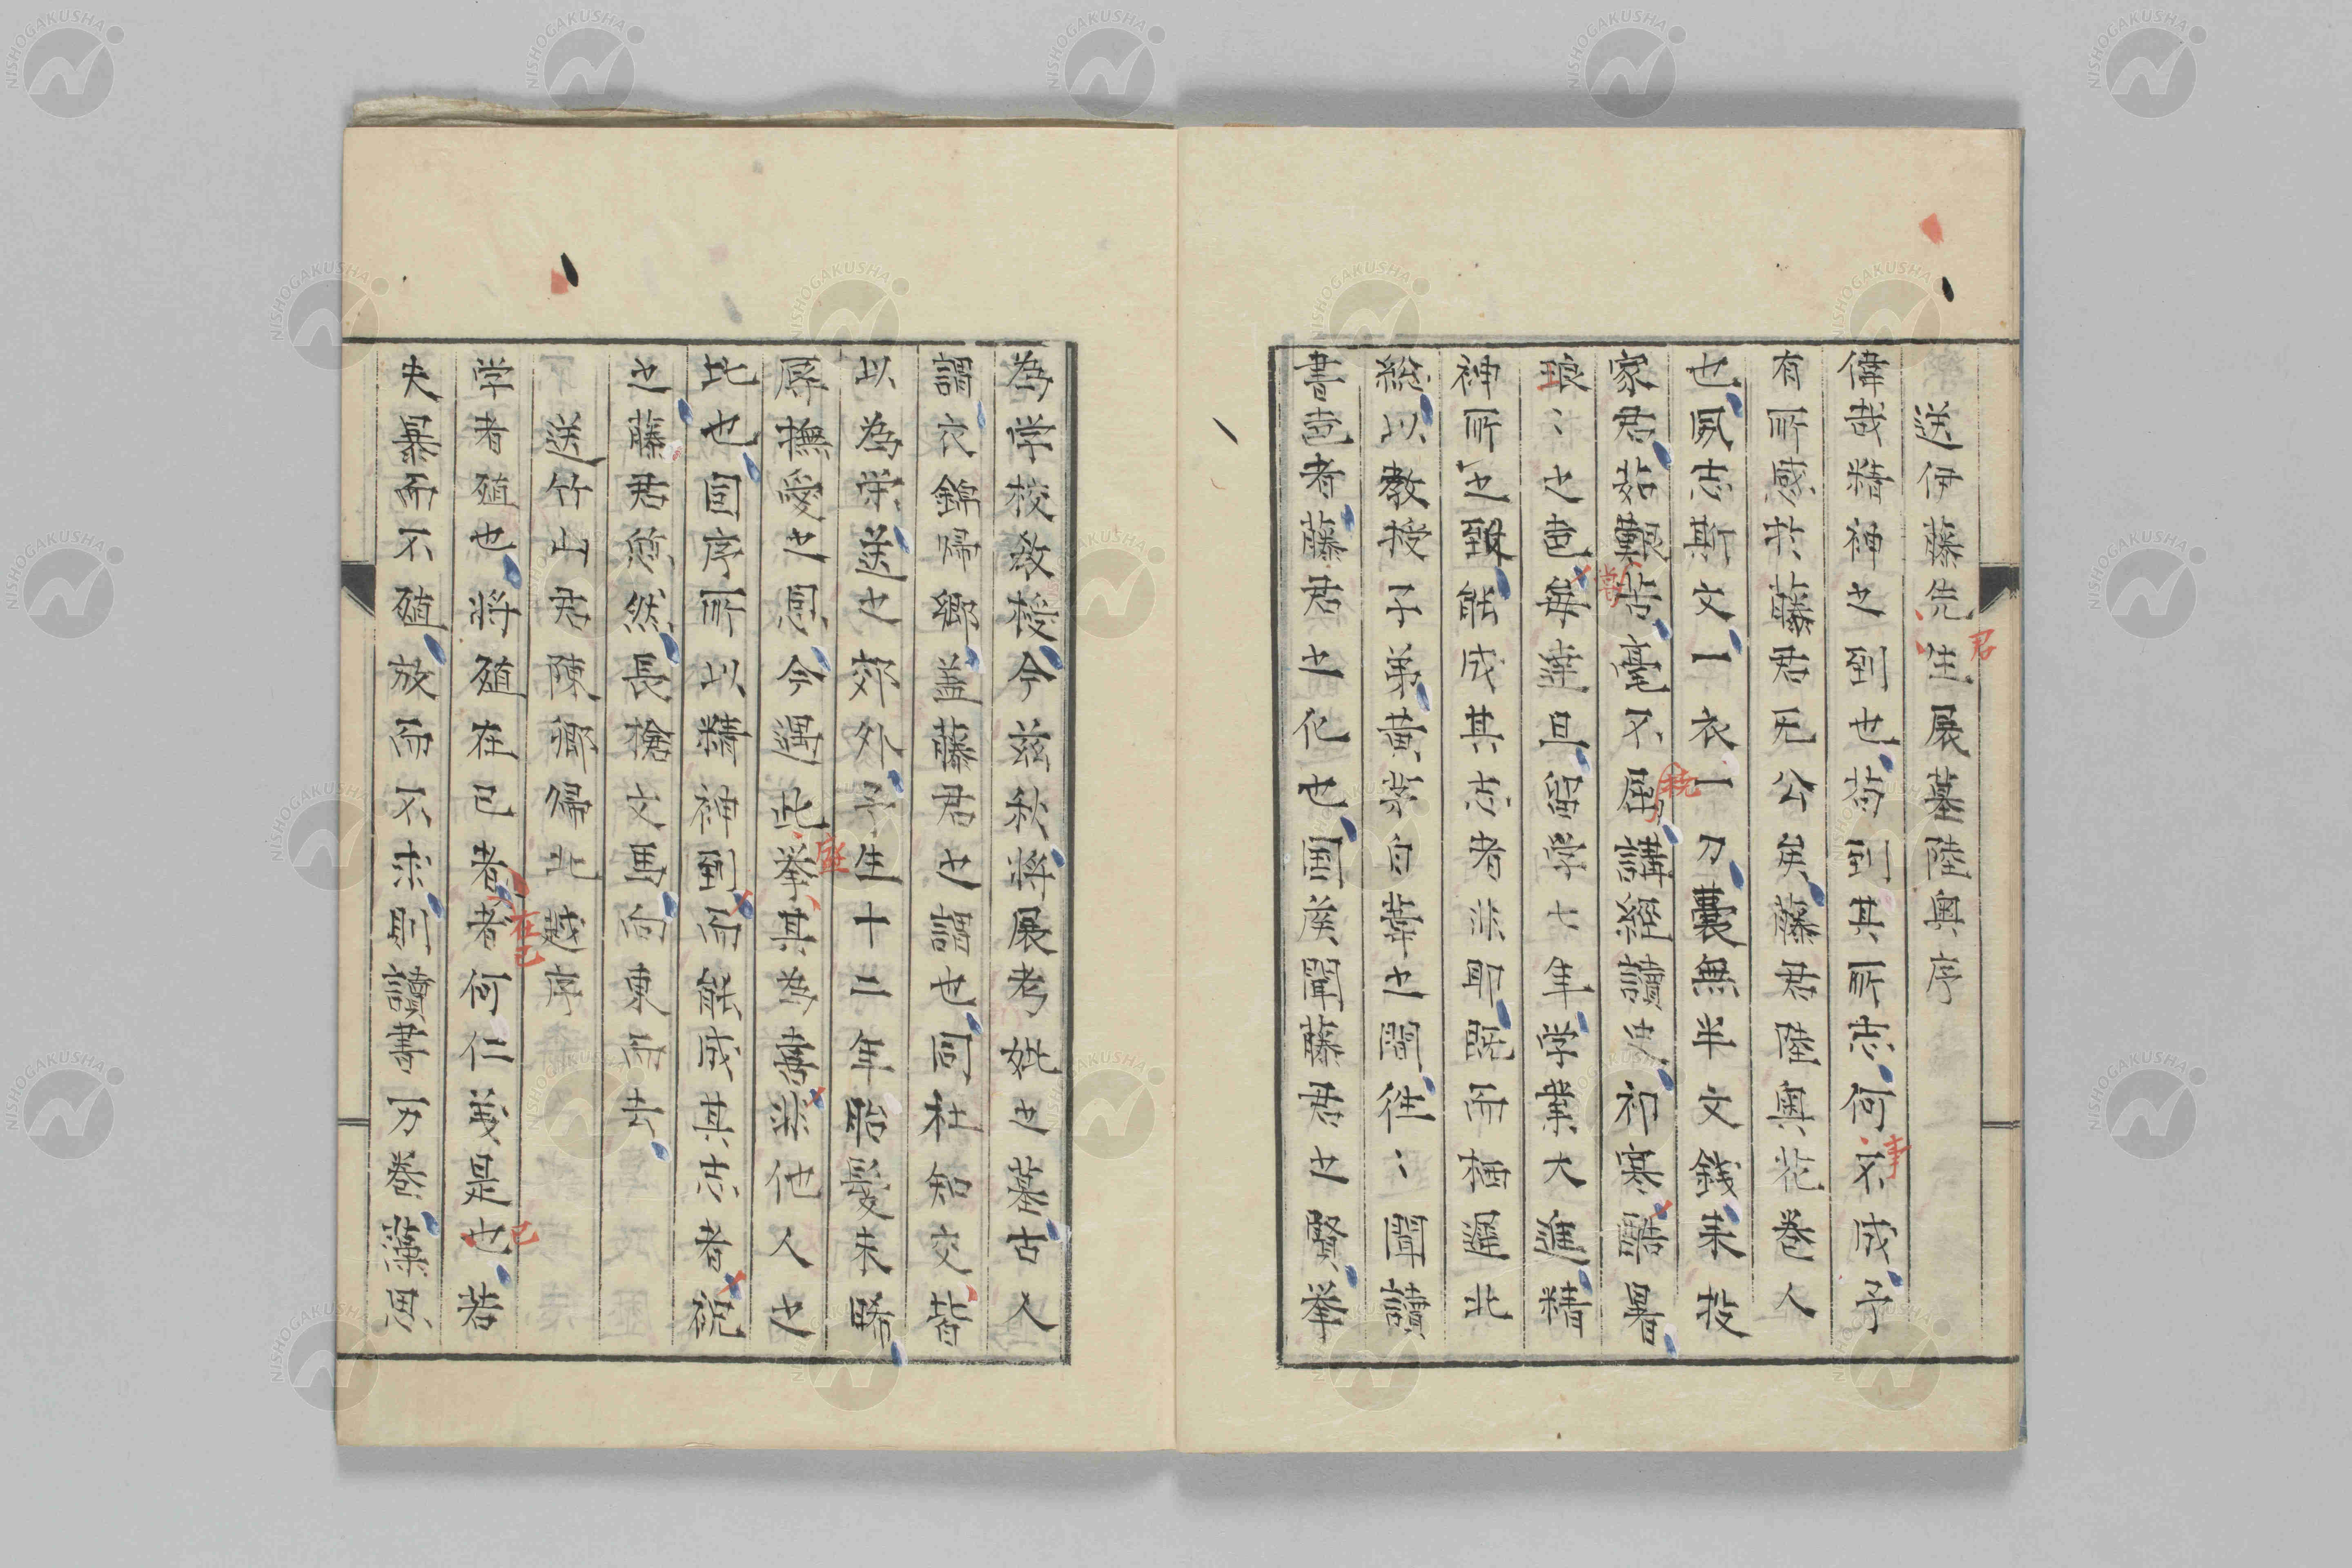 送伊藤先生展墓陸奥序
君
偉哉精神之到也苟到其所志何不成予
事
有所感於藤君旡公矣藤君陸奥花巻人
也夙志斯文一衣一刀囊無半文錢来投
家君茹艱苦毫不屈講経讀史祁寒酷暑
嘗
撓
琅〻之聲毎達旦留学七年学業大進精
神所之致能成其志者非耶既而栖遲此
総以教授子弟黄茅白葦之間往〻聞讀
書声者藤君之化也国侯聞藤君之賢挙
為学校教授今茲秋将展考妣之墓古人
謂衣錦帰郷盖藤君之謂也同社知交皆
以為栄送之郊外予生十二年始受未晞
厚撫愛之恩今遇此挙其為喜非他人之
盛
比也因序所以精神到而能成其志者祝
之藤君忽然長槍文馬向東而去
送竹山君陳郷帰北越序
学者殖也将殖在己者者何仁義是也若
在己
已
夫暴而不殖放而不求則讀書万巻薄思